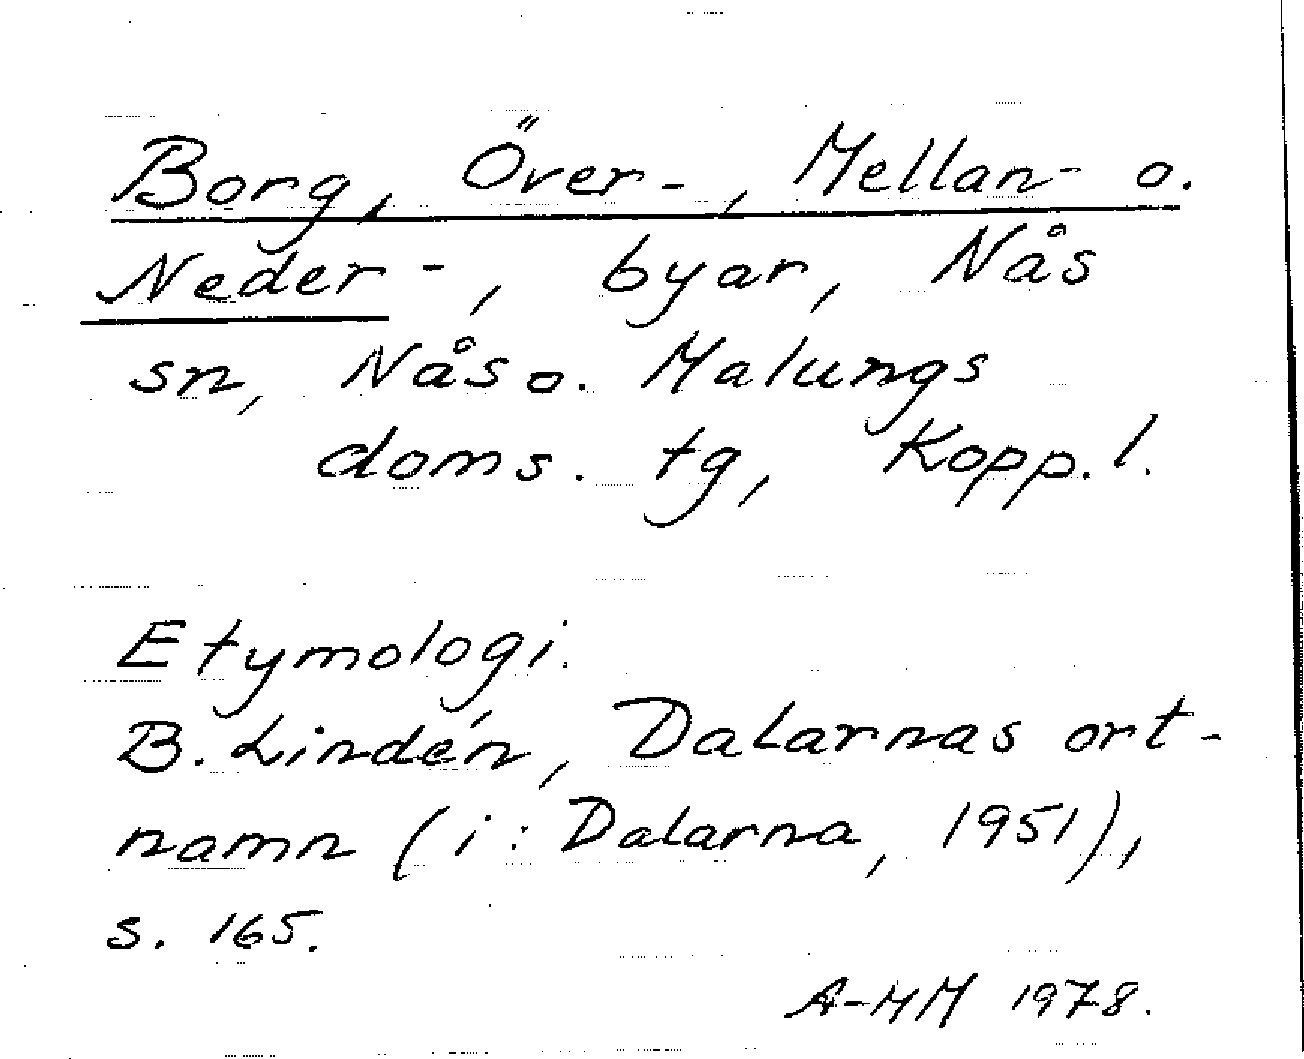 Borg, Över-, Mellan- o.
Neder-, byar, Nås
sn, Nås o. Malungs
doms. tg, Kopp. l.
Etymologi.
B. Lindén, Dalarnas ort-
namn (i: Dalarna, 1951),
s. 165.
A-MM 1978.